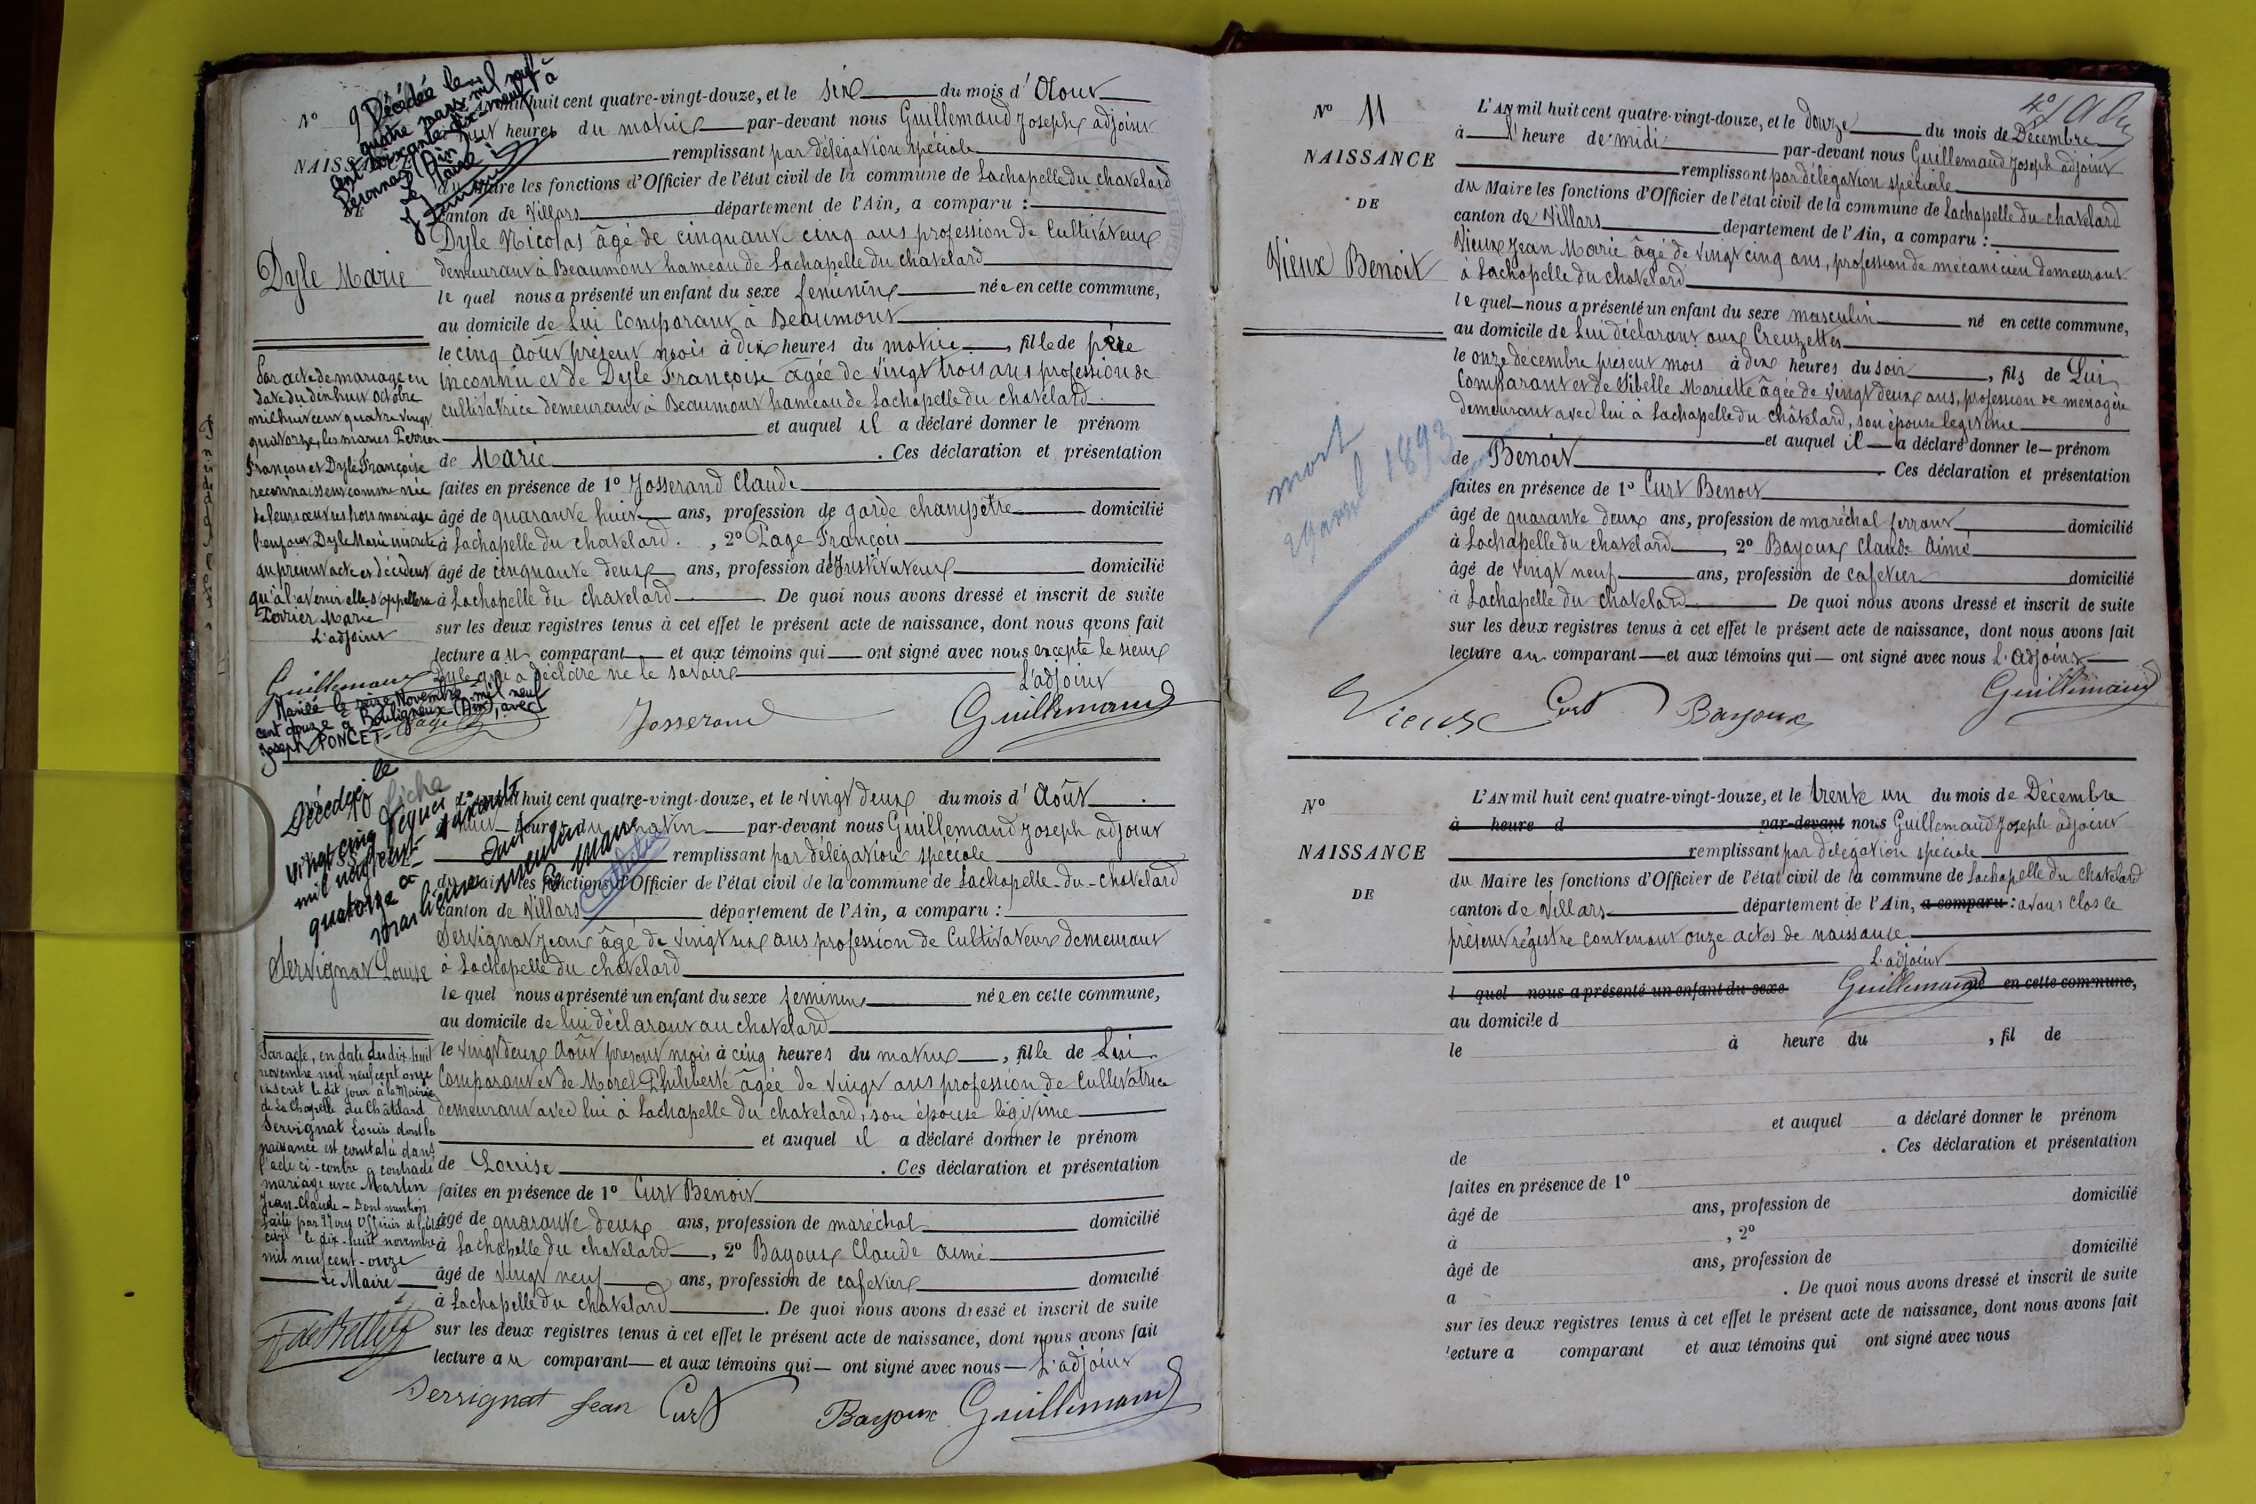 Nº 9
NAISSANCE
DE
Dyle Marie
Décédée le
quatre mars mil neuf
cent soixante-dix-neuf à
Péronnas (Ain)
Le Maire :
mil huit cent quatre-vingt-douze, et le six du mois d'Aout
huit heures du matin par-devant nous Guillemaud Joseph adjoint
remplissant par délégation spéciale
du Maire les fonctions d'Officier de l'état civil de la commune de Lachapelle du chatelard
canton de Villars département de l'Ain, a comparu :
Dyle Nicolas âgé de cinquante cinq ans profession de Cultivateur
demeurant à Beaumont hameau de Lachapelle du chatelard
le quel nous a présenté un enfant du sexe feminin née en cette commune,
au domicile de Lui Comparant à Beaumont
le cinq Août présent mois à dix heures du matin, fille de père
inconnu et de Dyle Françoise âgée de vingt trois ans profession de
cultivatrice demeurant à Beaumont hameau de Lachapelle du chatelard.
et auquel il a déclaré donner le prénom
de Marie. Ces déclaration et présentation
faites en présence de 1º Josserand Claude
âgé de quarante huit ans, profession de garde champêtre domicilié
à Lachapelle du chatelard., 2º Page François
âgé de cinquante deux ans, profession d'Instituteur domicilié
à Lachapelle du chatelard. De quoi nous avons dressé et inscrit de suite
sur les deux registres tenus à cet effet le présent acte de naissance, dont nous avons fait
lecture au comparant et aux témoins qui ont signé avec nous excepté le sieur
Dyle qui a déclaré ne le savoir
L'adjoint
Page Josserand Guillemaud
Par acte de mariage en
date du dix huit octobre
mil huit cent quatre vingt
quatorze, les mariés Perrier
François et Dyle Françoise
reconnaissent comme née
de leurs œuvres hors mariage
l'enfant Dyle Marie inscrite
au présent acte et décident
qu'à l'avenir elle s'appellera
Perrier Marie
L'adjoint
Guillemaud
Mariée le seize Novembre mil neuf
cent douze à Bouligneux (Ain), avec
Joseph PONCET-
Nº 10
Servignat Louise
Décédée le
vingt cinq
mil neuf cent soixante
quatorze à
Le Maire
fiche
mil huit cent quatre-vingt-douze, et le vingt deux du mois d'Août
heures du matin par-devant nous Guillemaud Joseph adjoint
remplissant par délégation spéciale
du Maire les fonctions d'Officier de l'état civil de la commune de Lachapelle-du-chatelard
canton de Villars département de l'Ain, a comparu :
Servignat Jean âgé de vingt six ans profession de Cultivateur demeurant
à Lachapelle du chatelard
le quel nous a présenté un enfant du sexe feminin née en cette commune,
au domicile de lui déclarant au chatelard
le vingt deux Août présent mois à cinq heures du matin, fille de Lui
Comparant et de Morel Philiberte âgée de vingt ans profession de Cultivatrice
demeurant avec lui à Lachapelle du chatelard, son épouse légitime
et auquel il a déclaré donner le prénom
de Louise. Ces déclaration et présentation
faites en présence de 1º Curt Benoit
âgé de quarante deux ans, profession de maréchal domicilié
à Lachapelle du chatelard, 2º Bayoux Claude Aimé
âgé de vingt neuf ans, profession de cafetier domicilié
à Lachapelle du chatelard. De quoi nous avons dressé et inscrit de suite
sur les deux registres tenus à cet effet le présent acte de naissance, dont nous avons fait
lecture au comparant et aux témoins qui ont signé avec nous L'adjoint
Servignat Jean Curt Bayoux Guillemaud
Par acte, en date du dix-huit
novembre mil neuf cent onze
inscrit le dit jour à la Mairie
de La Chapelle du Châtelard
Servignat Louise dont la
naissance est constatée dans
l'acte ci-contre a contracté
mariage avec Martin
Jean-Claude - Dont mention
faite par Nous Officier de l'état
civil le dix-huit novembre
mil neuf cent-onze
Le Maire
Nº 11
NAISSANCE
DE
Vieux Benoit
mort
1893
L'AN mil huit cent quatre-vingt-douze, et le douze du mois de Décembre
à l'heure de midi par-devant nous Guillemaud Joseph adjoint
remplissant par délégation spéciale
du Maire les fonctions d'Officier de l'état civil de la commune de Lachapelle du chatelard
canton de Villars département de l'Ain, a comparu :
Vieux Jean Marie âgé de vingt cinq ans, profession de mécanicien demeurant
à Lachapelle du chatelard
le quel nous a présenté un enfant du sexe masculin né en cette commune,
au domicile de Lui déclarant aux Creuzettes
le onze décembre présent mois à dix heures du soir, fils de Lui
Comparant et de Sibelle Mariette âgée de vingt deux ans, profession de menagère
demeurant avec lui à Lachapelle du châtelard, son épouse légitime
et auquel il a déclaré donner le prénom
de Benoit. Ces déclaration et présentation
faites en présence de 1º Curt Benoit
âgé de quarante deux ans, profession de maréchal ferrant domicilié
à Lachapelle du chatelard, 2º Bayoux Claude Aimé
âgé de vingt neuf ans, profession de cafetier domicilié
à Lachapelle du chatelard. De quoi nous avons dressé et inscrit de suite
sur les deux registres tenus à cet effet le présent acte de naissance, dont nous avons fait
lecture au comparant et aux témoins qui ont signé avec nous L'Adjoint
Vieux Curt Bayoux Guillemaud
Nº
NAISSANCE
DE
L'AN mil huit cent quatre-vingt-douze, et le trente un du mois de Décembre
à heure d par-devant nous Guillemaud Joseph adjoint
remplissant par délégation spéciale
du Maire les fonctions d'Officier de l'état civil de la commune de Lachapelle du chatelard
canton de Villars département de l'Ain, a comparu : avons clos le
présent régistre contenant onze actes de naissance
L'adjoint
Guillemaud
l quel nous a présenté un enfant du sexe en cette commune,
au domicile d
le à heure du , fil de
et auquel a déclaré donner le prénom
de . Ces déclaration et présentation
faites en présence de 1º
âgé de ans, profession de domicilié
à , 2º
âgé de ans, profession de domicilié
a . De quoi nous avons dressé et inscrit de suite
sur les deux registres tenus à cet effet le présent acte de naissance, dont nous avons fait
lecture a comparant et aux témoins qui ont signé avec nous